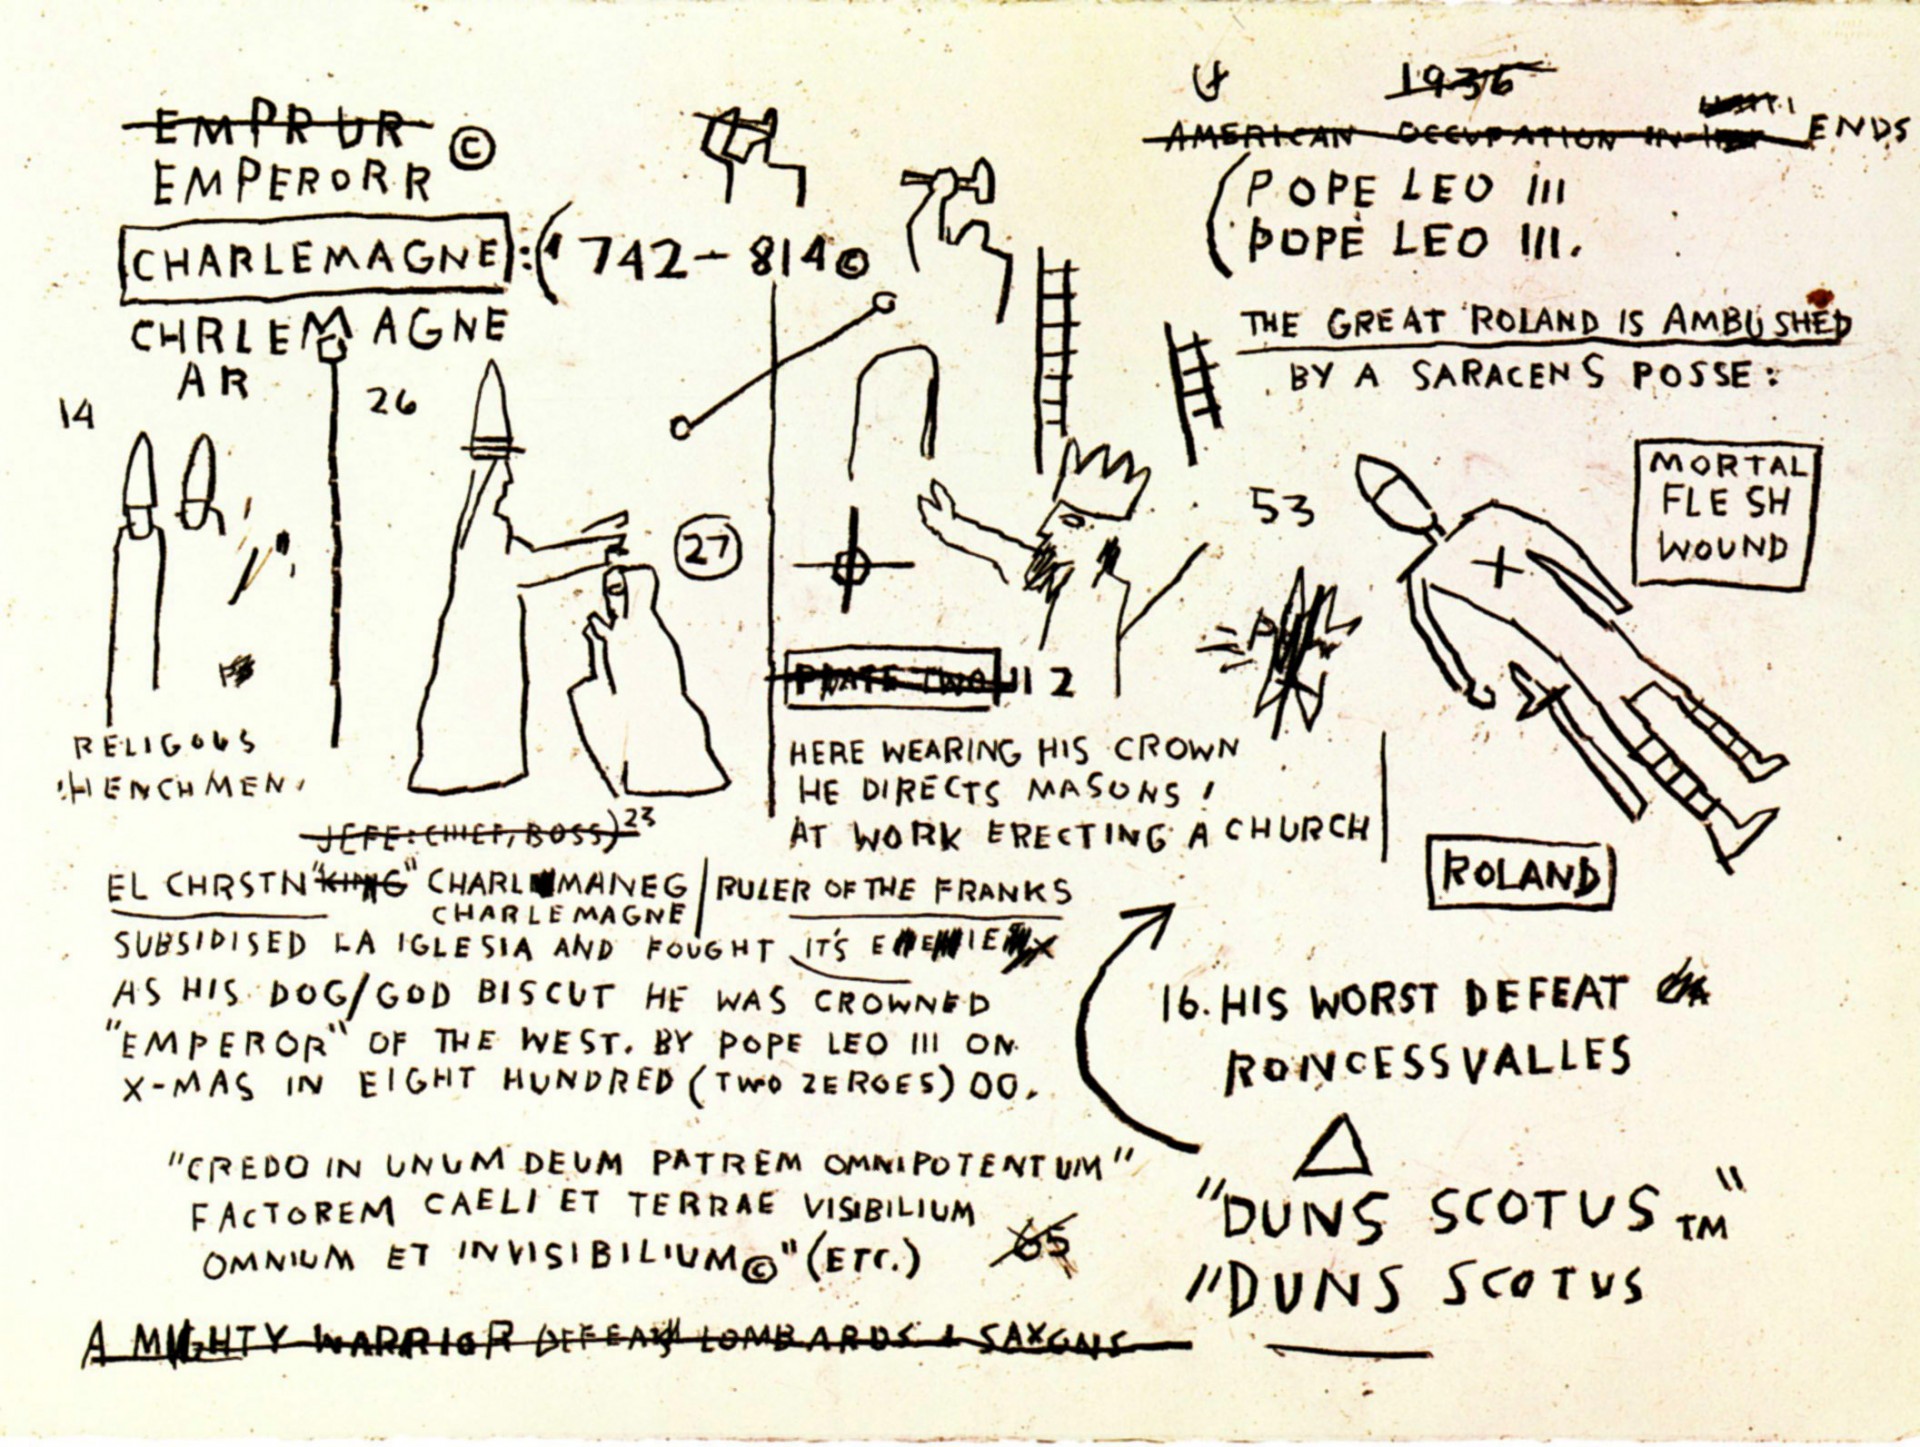 EMPRUR ©
EMPERORR
CHARLEMAGNE:( 742-814©
CHRLEMAGNE
AR
14
26
27
RELIGOUS
HENCHMEN.
1936
AMERICAN OCCUPATION IN ENDS
(POPE LEO III
POPE LEO III.
THE GREAT ROLAND IS AMBUSHED
BY A SARACENS POSSE:
53
MORTAL
FLESH
WOUND
PLATE TWO III 2
HERE WEARING HIS CROWN
HE DIRECTS MASONS !
AT WORK ERECTING A CHURCH
ROLAND
JEFE: CHIEF, BOSS) 23
EL CHRSTN "KING" CHARL MANEG | RULER OF THE FRANKS
CHARLEMAGNE
SUBSIDISED LA IGLESIA AND FOUGHT IT'S
AS HIS DOG/GOD BISCUT HE WAS CROWNED
"EMPEROR" OF THE WEST. BY POPE LEO III ON
X-MAS IN EIGHT HUNDRED (TWO ZEROES) 00.
16. HIS WORST DEFEAT
RONCESSVALLES
"CREDO IN UNUM DEUM PATREM OMNIPOTENTUM"
FACTOREM CAELI ET TERRAE VISIBILIUM
OMNIUM ET INVISIBILIUM©" (ETC.)
65
"DUNS SCOTUS TM"
"DUNS SCOTUS
A MIGHTY WARRIOR DEFEATS LOMBARDS & SAXONS